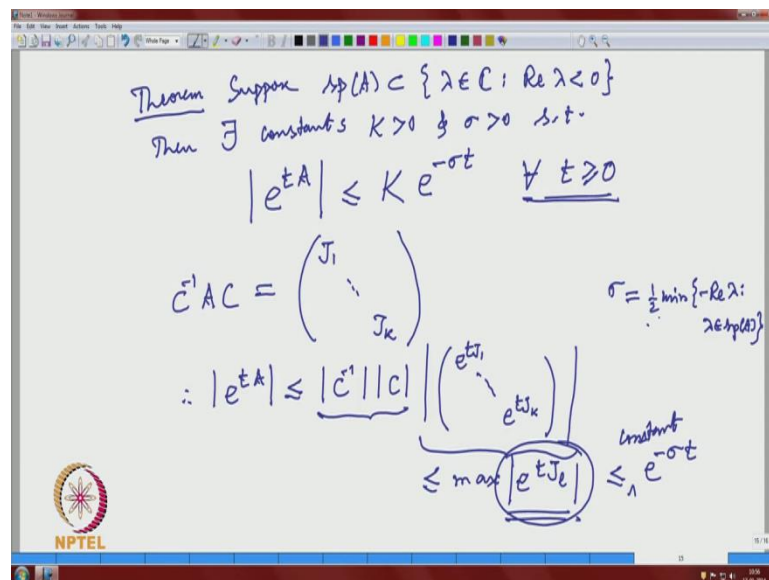 Note1 - Windows Journal
File Edit View Insert Actions Tools Help
Theorem Suppose sp(A) ⊂ { λ ∈ C : Re λ < 0 }
Then ∃ constants K > 0 & σ > 0 s.t.
|e^{tA}| ≤ K e^{-σt} ∀ t ≥ 0
C^{-1} A C = ( J_1 ⋱ J_k )
σ = 1/2 min { -Re λ :
λ ∈ sp(A) }
∴ |e^{tA}| ≤ |C^{-1}| |C| | ( e^{tJ_1} ⋱ e^{tJ_k} ) |
≤ max |e^{tJ_l}| ≤ constant e^{-σt}
NPTEL
15